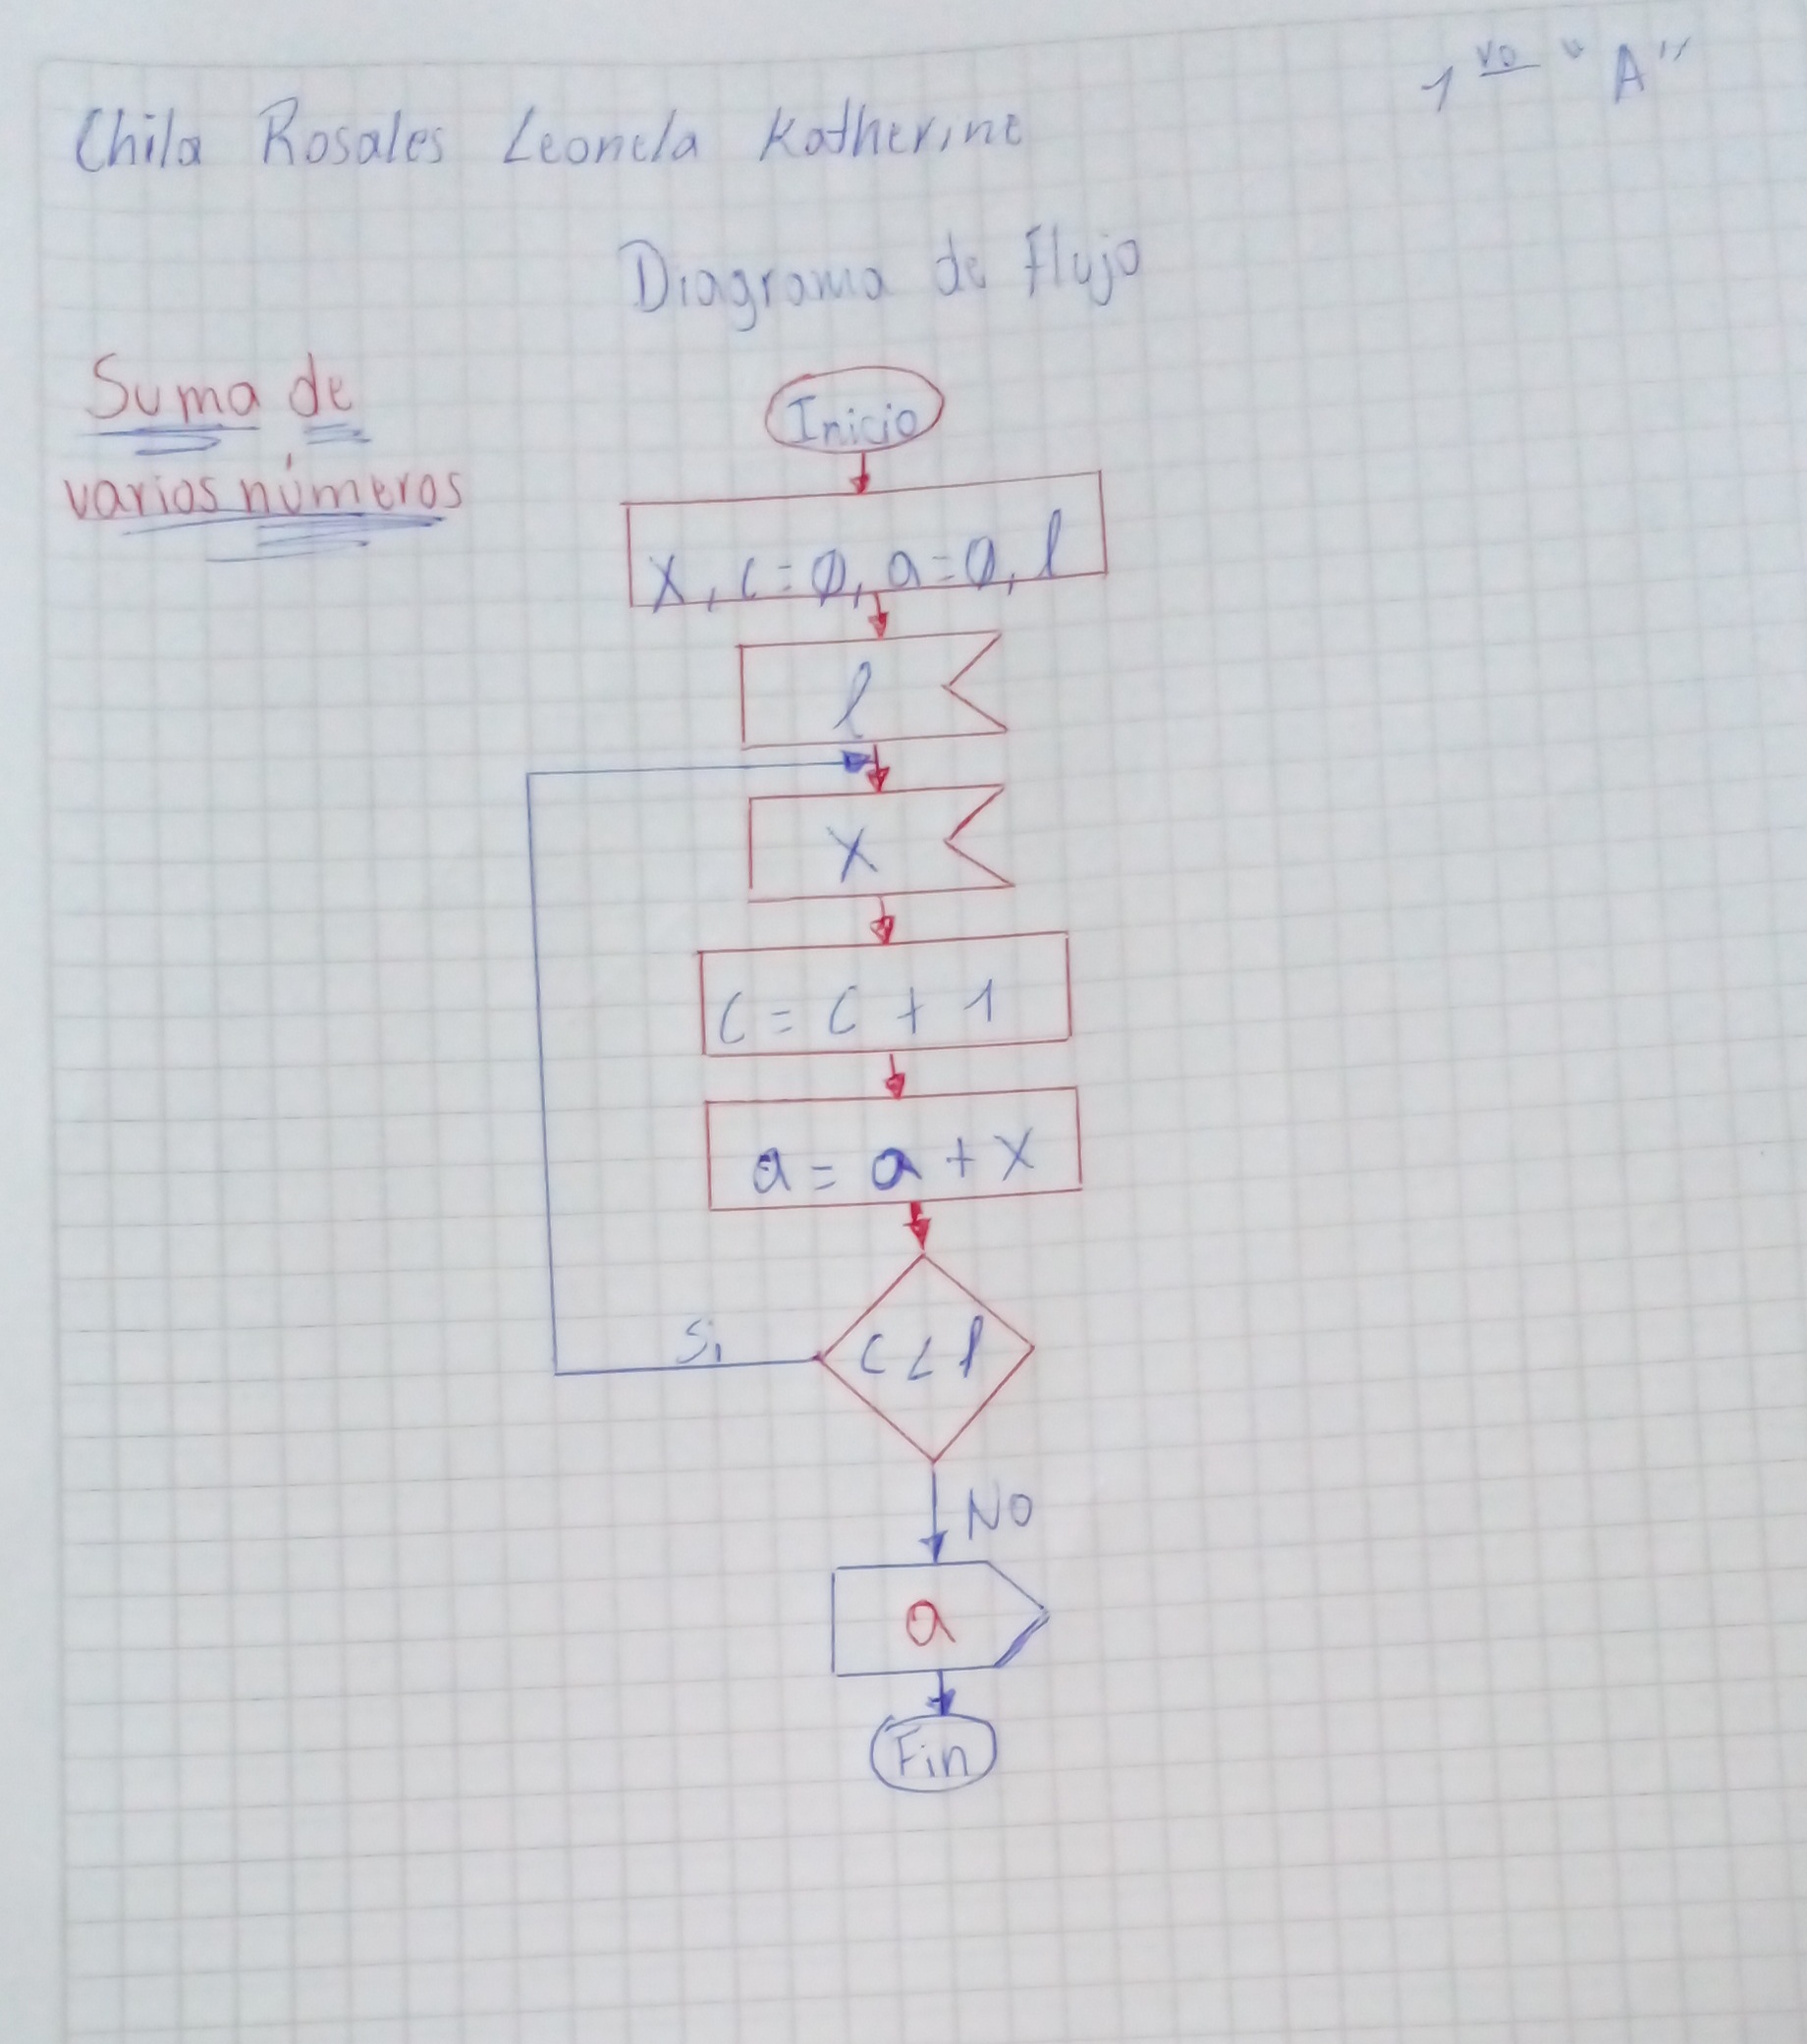 1vo "A"
Chila Rosales Leonela Katherine
Diagrama de Flujo
Suma de
varios números
Inicio
X, c = 0, a = 0, l
l
X
C = C + 1
a = a + X
C < l
Si
NO
a
Fin